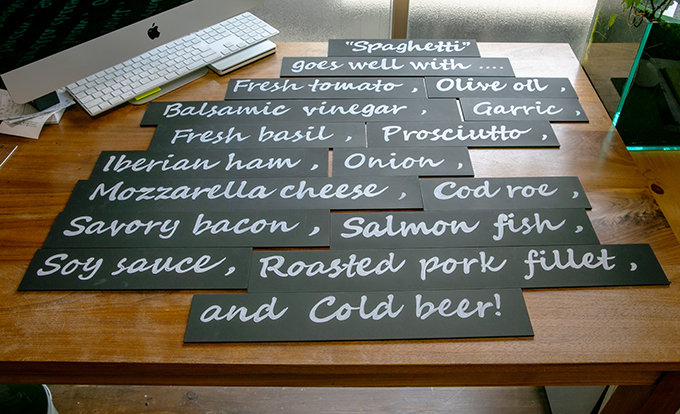 "Spaghetti"
goes well with ....
Fresh tomato , Olive oil ,
Balsamic vinegar , Garric ,
Fresh basil , Prosciutto ,
Iberian ham , Onion ,
Mozzarella cheese , Cod roe ,
Savory bacon , Salmon fish ,
Soy sauce , Roasted pork fillet ,
and Cold beer!